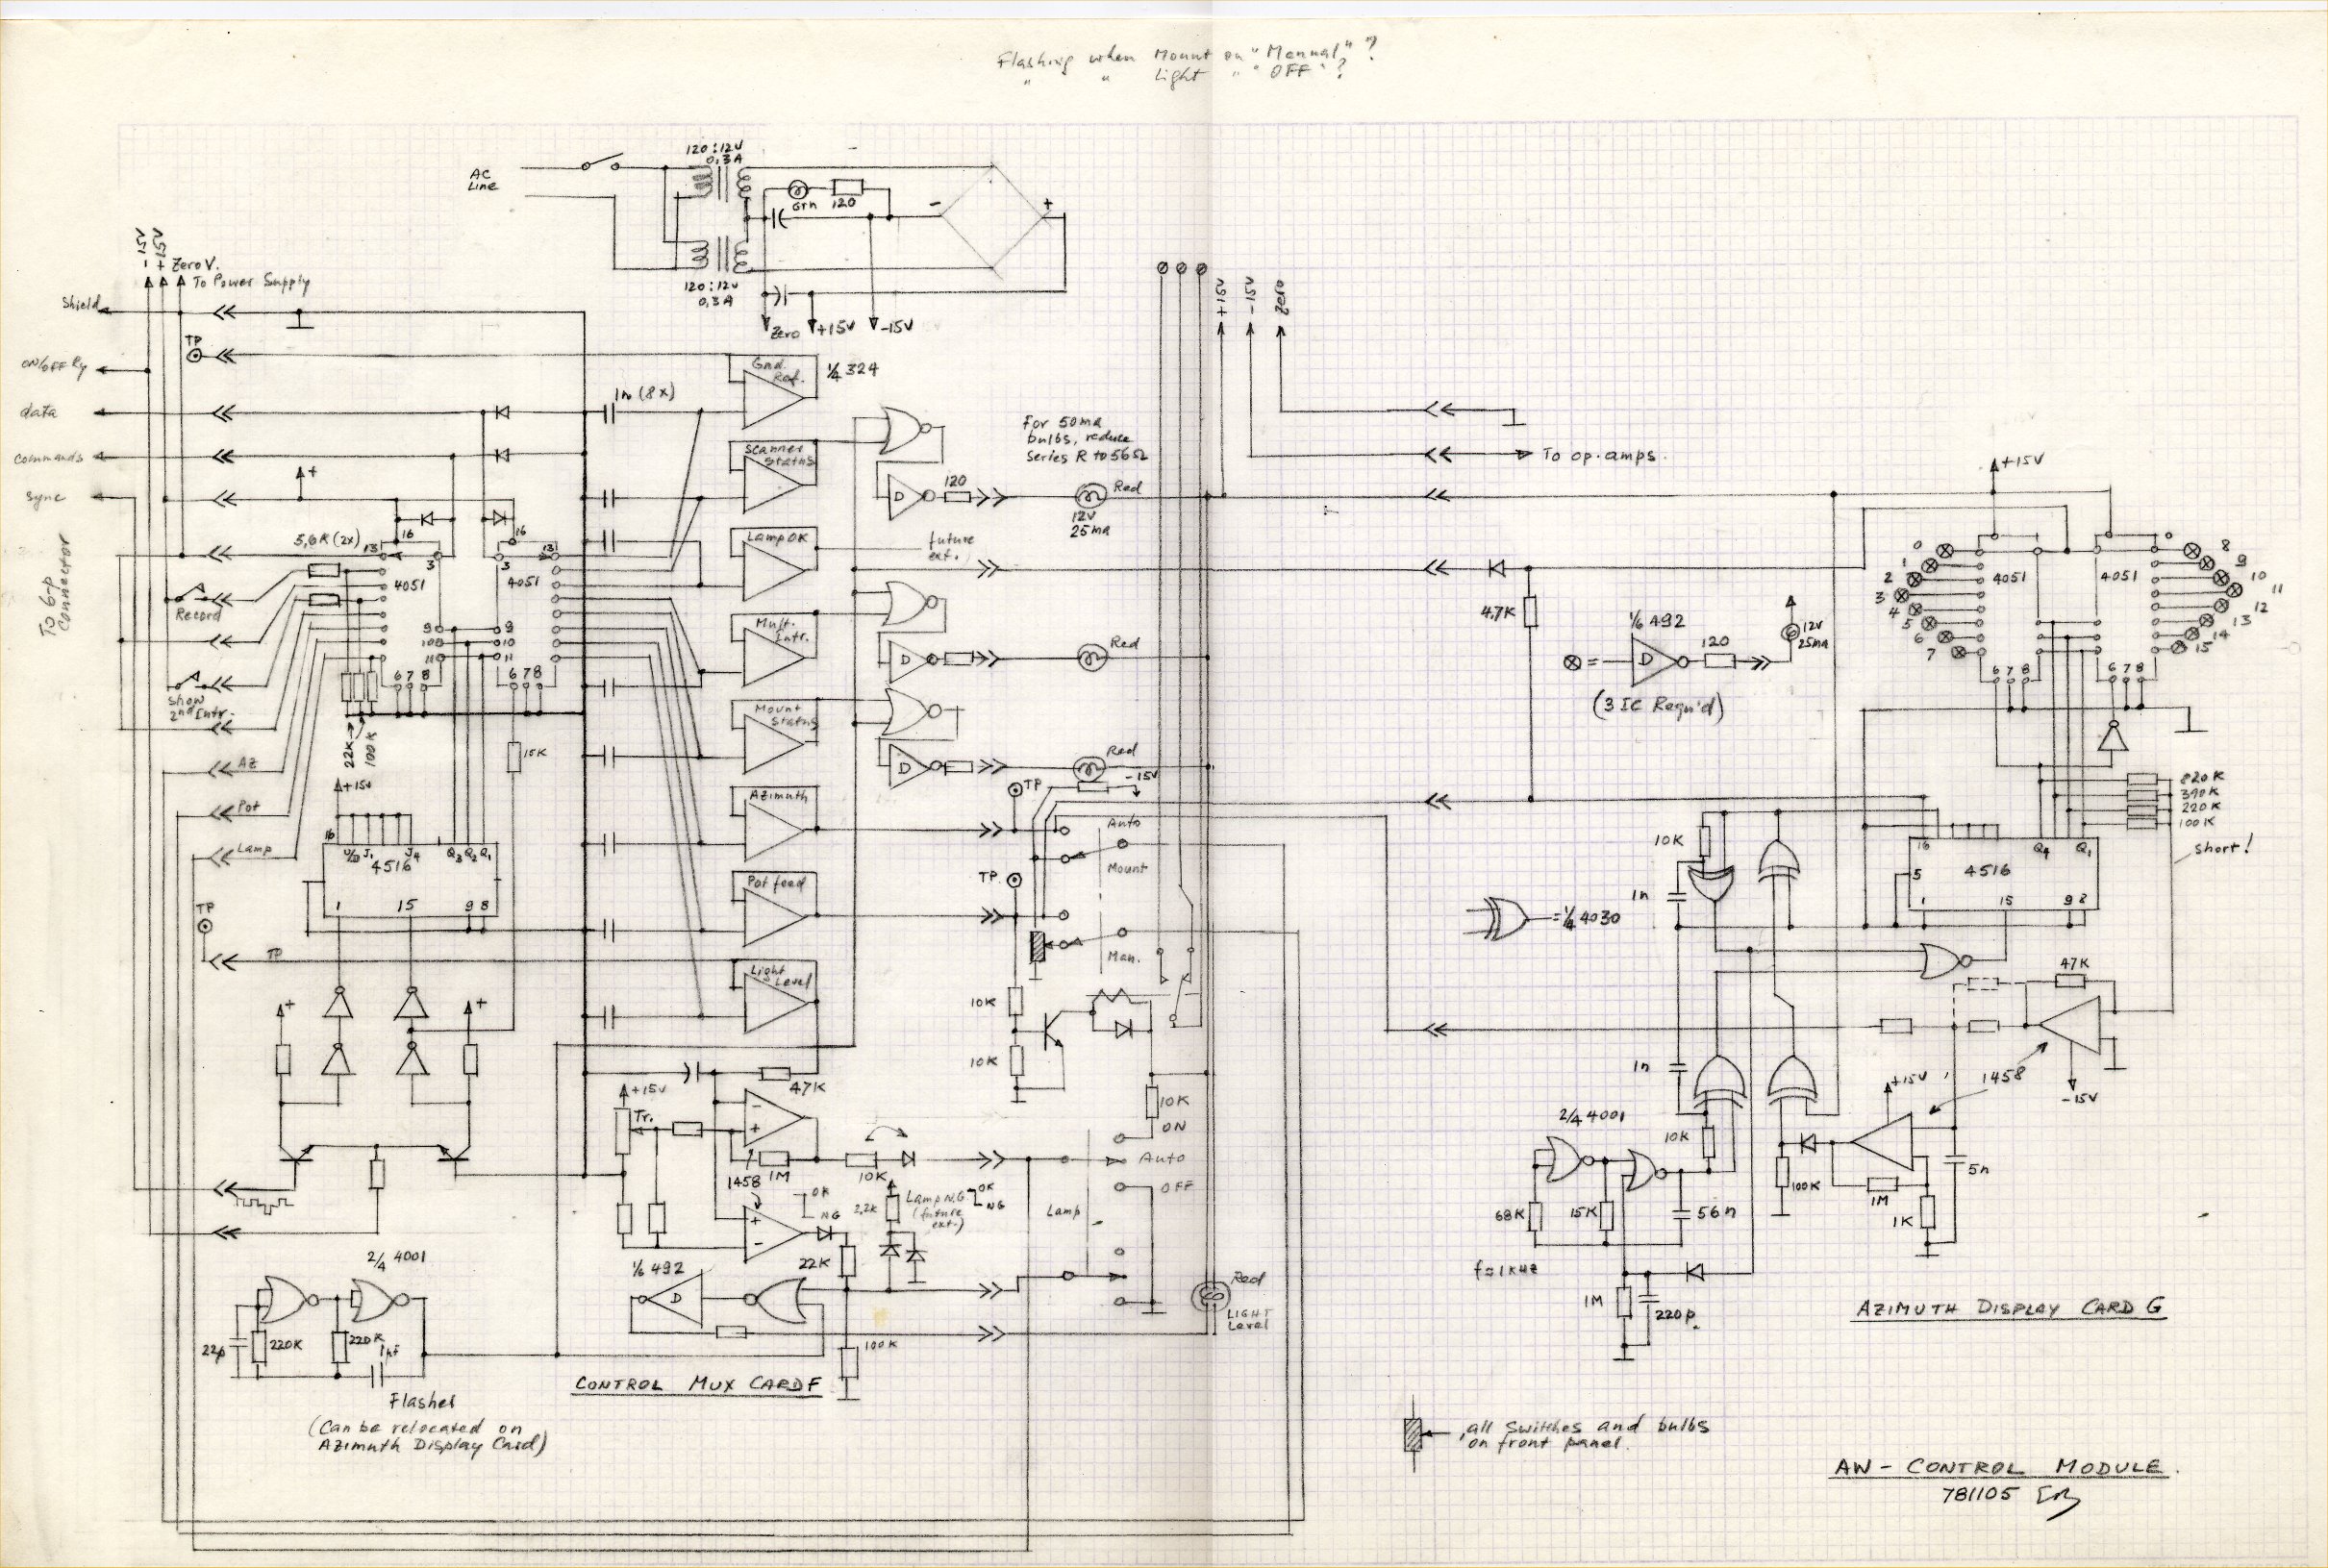 Flashing when Mount on "Menual"?
" " Light " "OFF"?
120:12V
0,3A
AC
Line
Grn
120
-
+
120:12V
0,3A
Zero
+15V
-15V
-15V
+15V
Zero V.
To Power Supply
Shield
TP
ON/OFF Ry
data
commands
sync
To 6-p
Connector
+
5,6K (2x)
16
13
3
4051
16
13
3
4051
Record
9
10
11
9
10
11
6 7 8
6 7 8
Show
2nd Intr.
22K
100K
15K
Az
+15V
Pot
Lamp
16
U/D
J1
J4
Q3 Q2 Q1
4516
1
15
9 8
TP
TP
+
+
2/4 4001
22µ
220K
220K
1µF
Flasher
(Can be relocated on
Azimuth Display Card)
1n (8x)
Gnd.
Ref.
1/4 324
Scanner
Status
Lamp OK
future
ext.
Mult.
Intr.
Mount
Status
Azimuth
Pot feed
Light
Level
For 50ma
bulbs, reduce
Series R to 56Ω
D
120
Red
12V
25ma
D
Red
D
Red
-15V
TP
Auto
Mount
TP.
Man.
10K
10K
47K
+15V
Tr.
-
+
1M
1458
10K
OK
NG
2,2K
Lamp N.G
OK
NG
(future
ext.)
+
-
22K
1/6 492
D
100K
10K
ON
Auto
OFF
Lamp
Red
LIGHT
Level
CONTROL MUX CARD F
+15V
-15V
Zero
To op.amps.
4.7K
1/6 492
D
120
12V
25ma
(3 IC Requ'd)
+15V
0
1
2
3
4
5
6
7
4051
4051
8
9
10
11
12
13
14
15
6 7 8
6 7 8
820K
390K
220K
100K
short!
16
Q4
Q1
5
4516
1
15
9 8
10K
1n
=1/4 4030
47K
1n
+15V
1458
-15V
2/4 4001
10K
5n
100K
1M
1K
68K
15K
56n
f=1KHz
1M
220p.
AZIMUTH DISPLAY CARD G
all switches and bulbs
on front panel.
AW - CONTROL MODULE.
781105